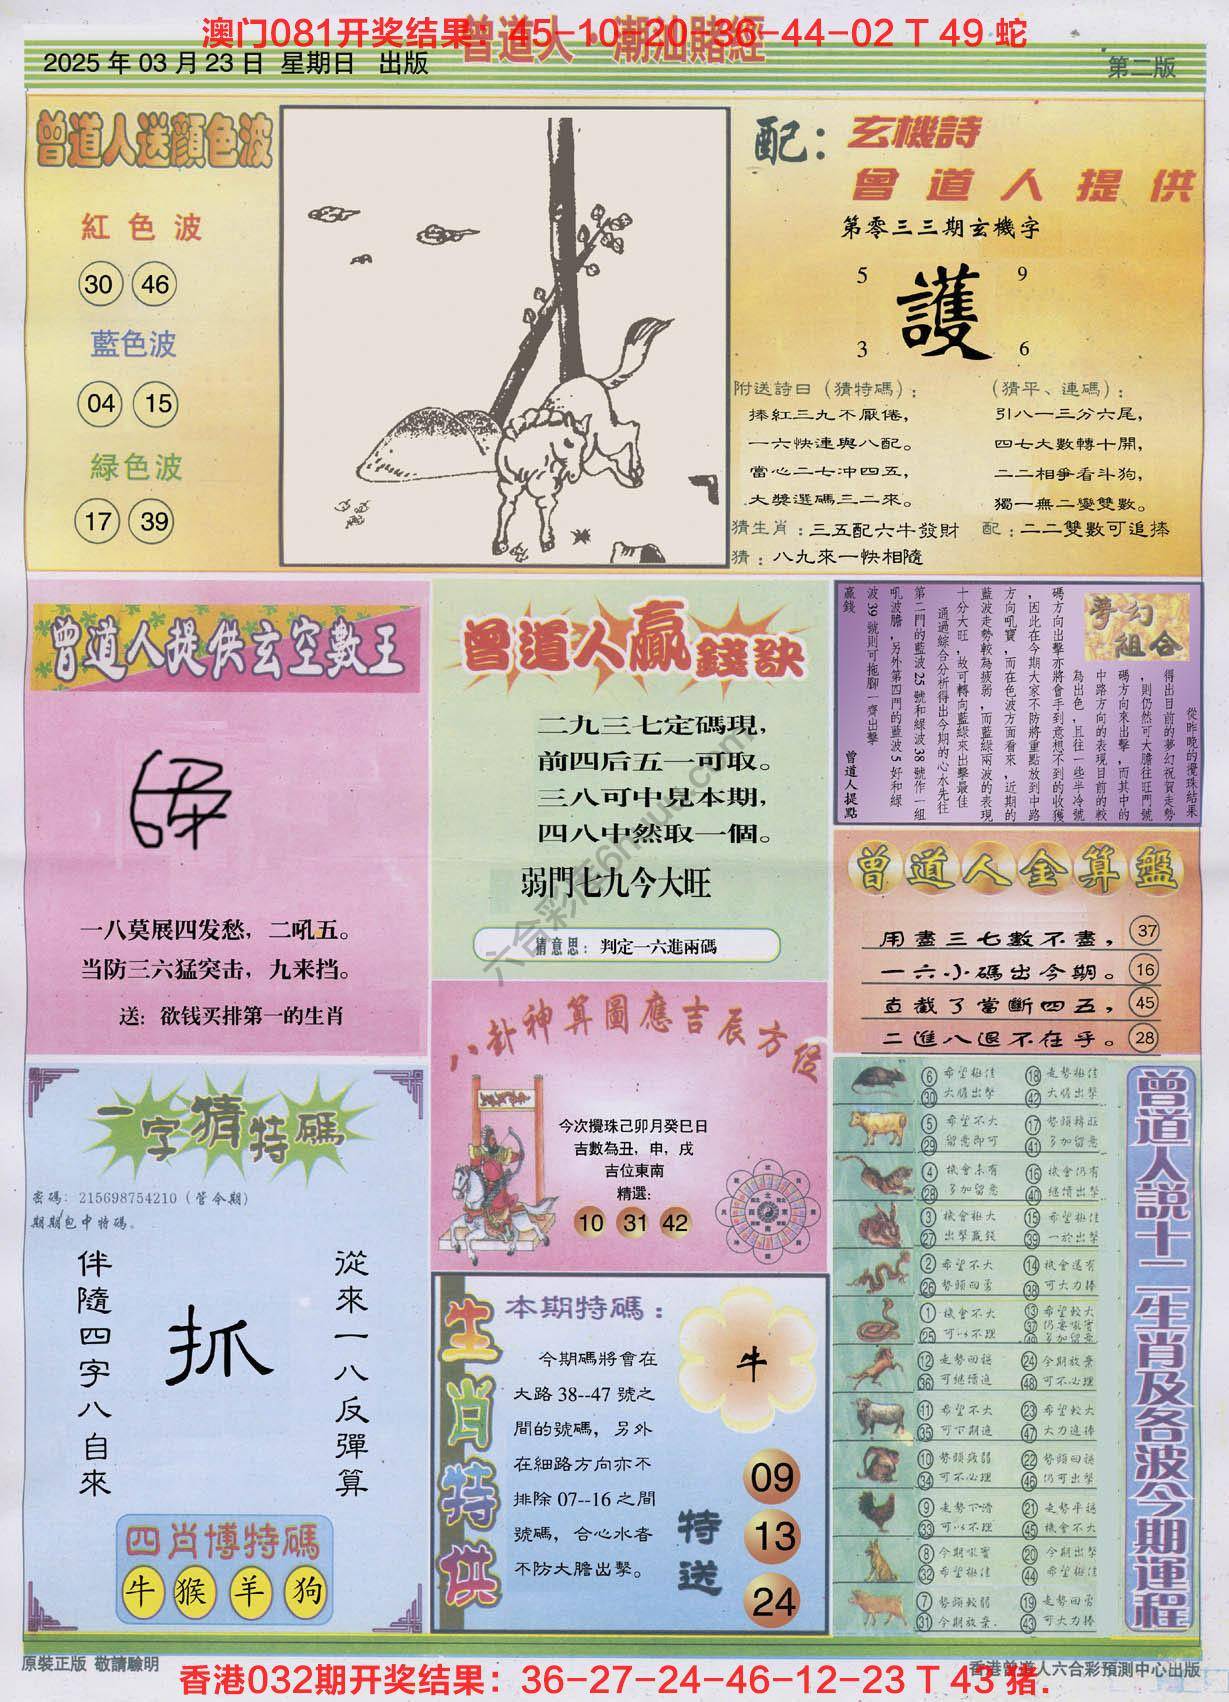 澳门081开奖结果：45-10-20-36-44-02 T 49 蛇
曾道人 潮汕賭經
2025 年 03 月 23 日 星期日 出版
第二版
曾道人送顔色波
紅色波
30 46
藍色波
04 15
緑色波
17 39
配：
玄機詩
曾道人提供
第零三三期玄機字
5 9
護
3 6
附送詩曰（猜特碼）：
捧紅三九不厭倦，
一六快連與八配。
當心二七冲四五，
大獎選碼三二來。
（猜平、連碼）：
引八一三分六尾，
四七大數轉十開，
二二相爭看斗狗，
獨一無二變雙數。
猜生肖：三五配六牛發財
配：二二雙數可追捧
猜：八九來一快相隨
曾道人提供玄空數王
一八莫展四发愁，二吼五。
当防三六猛突击，九来挡。
送：欲钱买排第一的生肖
曾道人贏錢訣
二九三七定碼現，
前四后五一可取。
三八可中見本期，
四八中然取一個。
弱門七九今大旺
猜意思：判定一六進兩碼
夢幻組合
從昨晚的攪珠結果
得出目前的夢幻祝賀走勢
，則仍然可大膽往旺門號
碼方向來出擊，而其中的
中路方向的表現目前的較
為出色，且往一些半冷號
碼方向出擊亦將會手到意想不到的收獲
，因此在今期大家不防將重點放到中路
方向吼寶，而在色波方面看來，近期的
藍波走勢較為疲弱，而藍綠兩波的表現
十分大旺，故可轉向藍綠來出擊最佳
通過綜合分析得出今期的心水先往
第二門的藍波 25 號和綠波 38 號作一組
吼波膽，另外第四門的藍波 5 好和綠
波 39 號則可拖腳一齊出擊
贏錢
曾道人提點
曾道人金算盤
用盡三七數不盡， 37
一六小碼出今期。 16
直截了當斷四五， 45
二進八退不在乎。 28
八卦神算圖應吉辰方位
今次攪珠己卯月癸巳日
吉數為丑，申，戌
吉位東南
精選：
10 31 42
一字猜特碼
密碼：215698754210（管今期）
期期包中特碼。
從來一八反彈算
抓
伴隨四字八自來
四肖博特碼
牛 猴 羊 狗
生肖特供
本期特碼：
今期碼將會在
大路 38--47 號之
間的號碼，另外
在細路方向亦不
排除 07--16 之間
號碼，合心水者
不防大膽出擊。
牛
特送
09
13
24
曾道人説十二生肖及各波今期運程
6 希望極佳 18 走勢極佳
30 大膽出擊 42 大膽出擊
5 希望不大 17 勢頭轉旺
29 留意即可 41 多加留意
4 機會未有 16 機會仍有
28 多加留意 40 繼續出擊
3 機會極大 15 希望極佳
27 出擊贏錢 39 一於出擊
2 希望不大 14 機會還有
26 勢頭回勇 38 可大力捧
1 機會不大 13 希望較大
25 可以不理 37 仍要吼實
49 多加留意
12 走勢回穩 24 今期放棄
36 可繼續追 48 可不必理
11 希望不大 23 希望較大
35 可下期追 47 大力追捧
10 勢頭疲弱 22 勢頭回穩
34 可不必理 46 仍可出擊
9 走勢下滑 21 走勢平穩
33 可以不理 45 機會不大
8 今期吼實 20 今期出擊
32 希望極佳 44 希望極佳
7 勢頭較弱 19 走勢回勇
31 今期放棄. 43 可大力捧
六合彩库6htuku.com
原裝正版 敬請驗明
香港曾道人六合彩預測中心出版
香港032期开奖结果：36-27-24-46-12-23 T 43 猪.